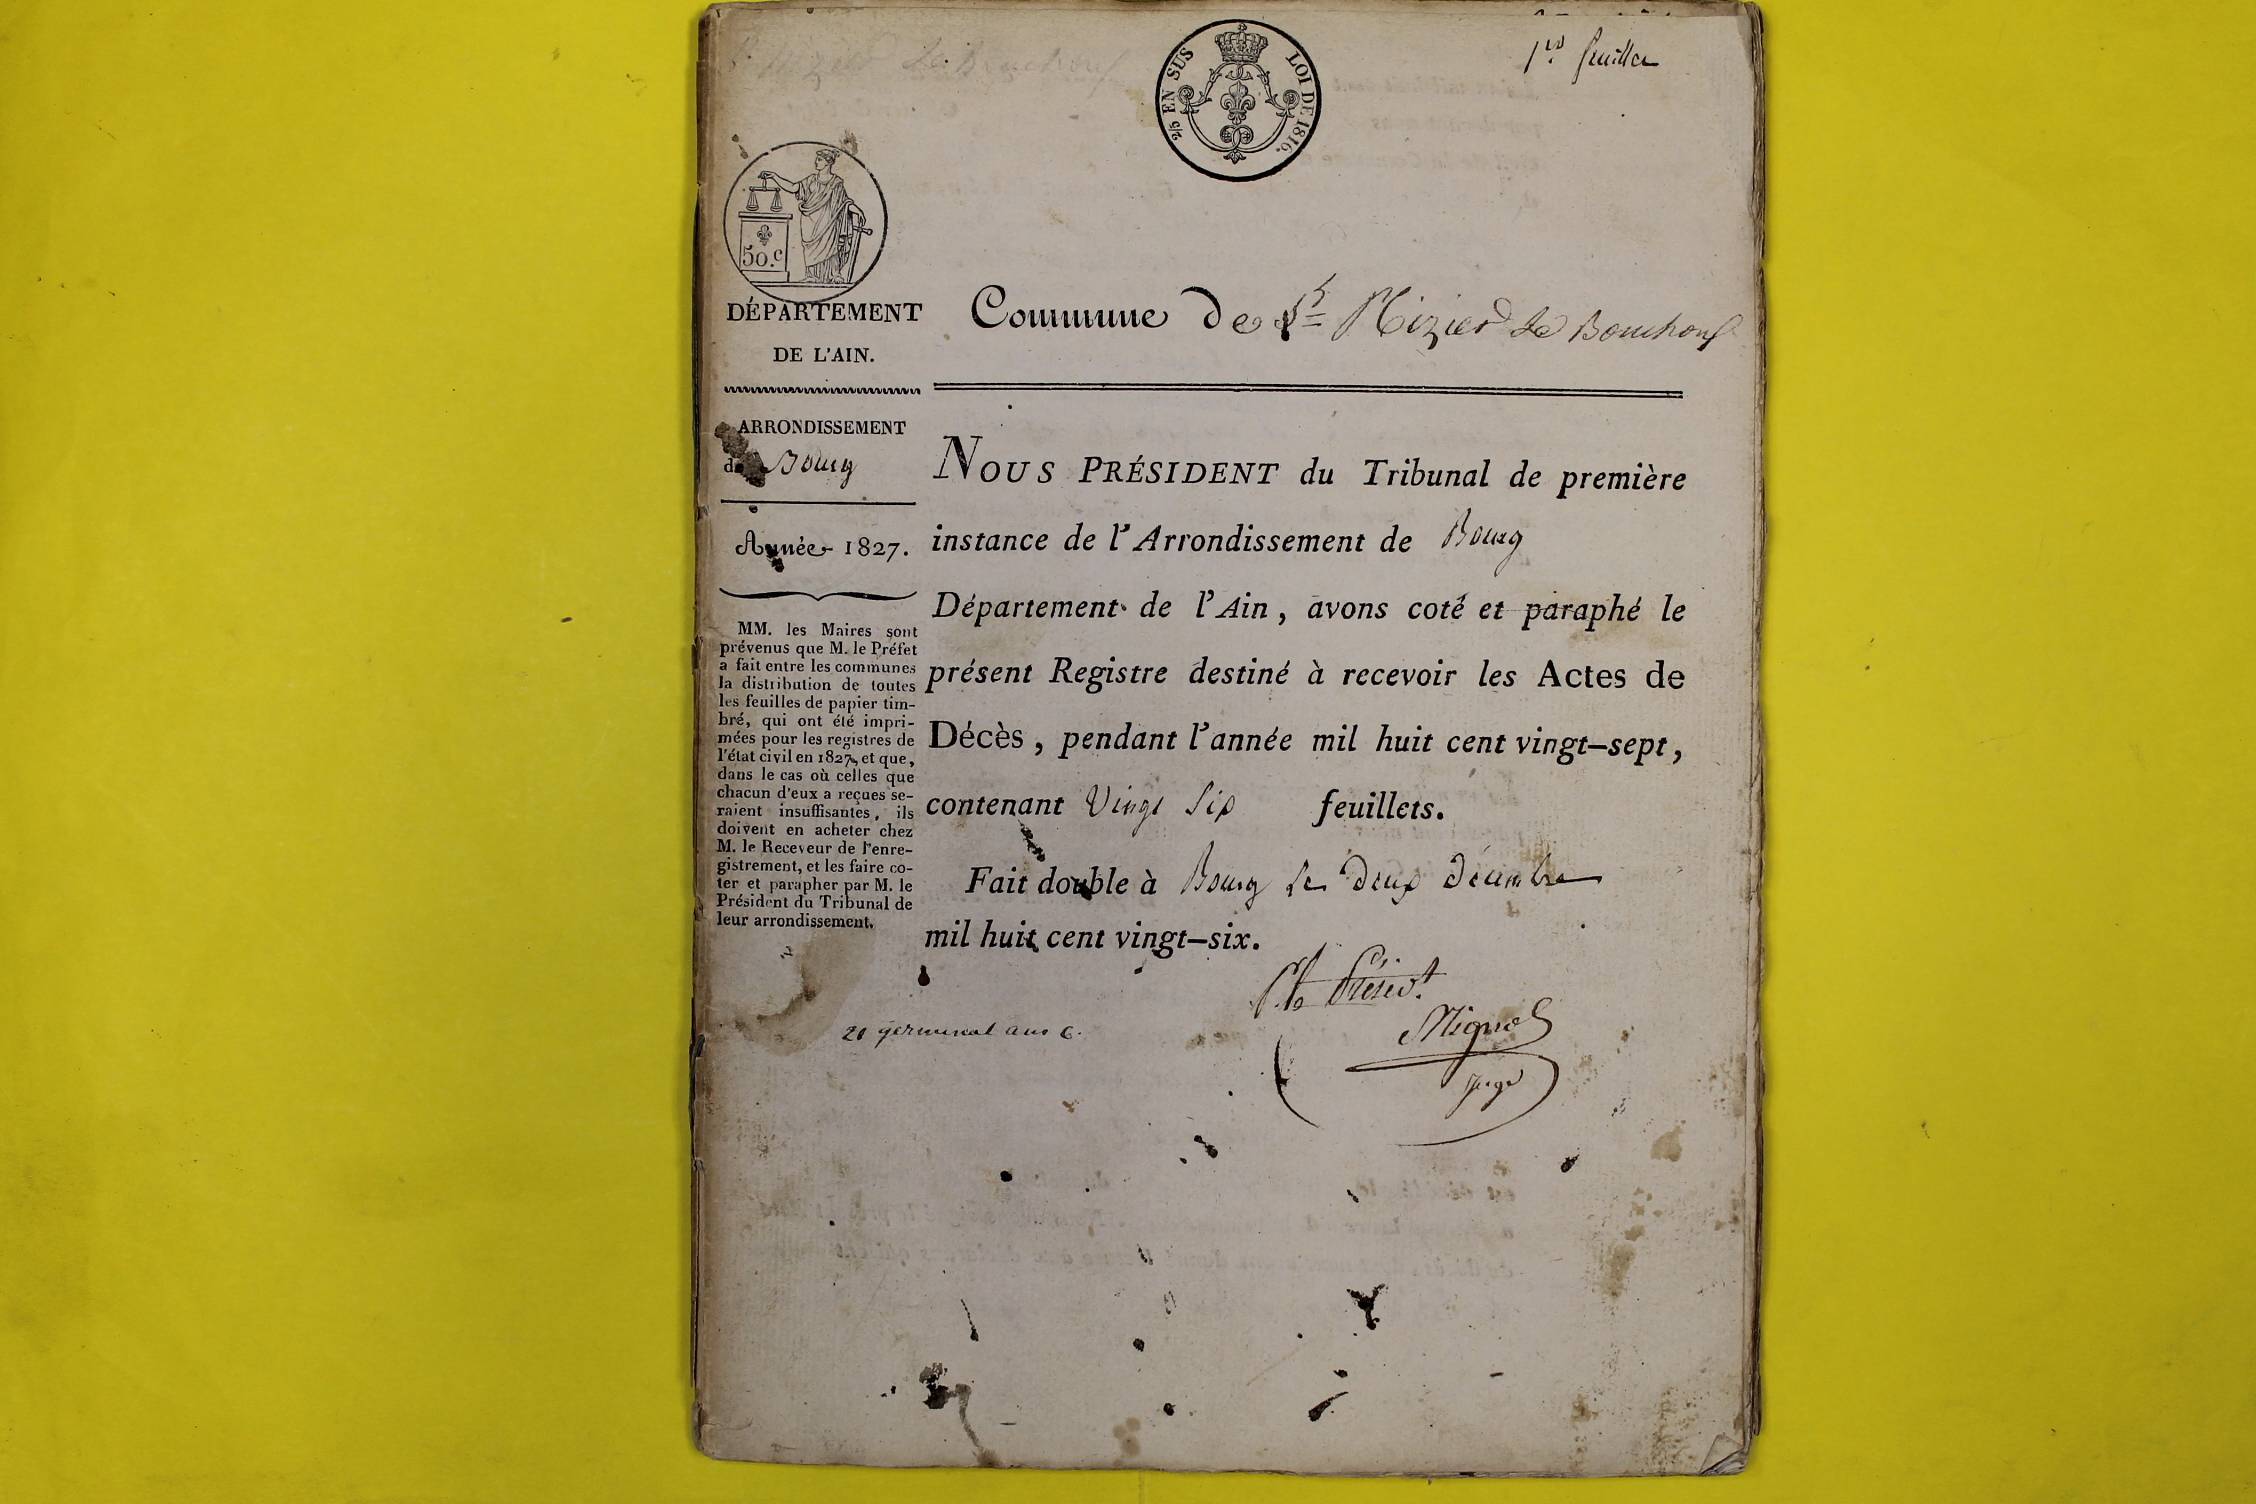 1er feuillet
2/5 EN SUS LOI DE 1816.
50.c
DÉPARTEMENT
DE L'AIN.
Commune de St Nizier Le Bouchoux
ARRONDISSEMENT
de Bourg
Année 1827.
MM. les Maires sont
prévenus que M. le Préfet
a fait entre les communes
la distribution de toutes
les feuilles de papier tim-
bré, qui ont été impri-
mées pour les registres de
l'état civil en 1827, et que,
dans le cas où celles que
chacun d'eux a reçues se-
raient insuffisantes, ils
doivent en acheter chez
M. le Receveur de l'enre-
gistrement, et les faire co-
ter et parapher par M. le
Président du Tribunal de
leur arrondissement.
NOUS PRÉSIDENT du Tribunal de première
instance de l'Arrondissement de Bourg
Département de l'Ain, avons coté et paraphé le
présent Registre destiné à recevoir les Actes de
Décès, pendant l'année mil huit cent vingt-sept,
contenant Vingt Six feuillets.
Fait double à Bourg Le Deux Décembre
mil huit cent vingt-six.
Présidt
Mignot
Juge
21 germinal an 6.